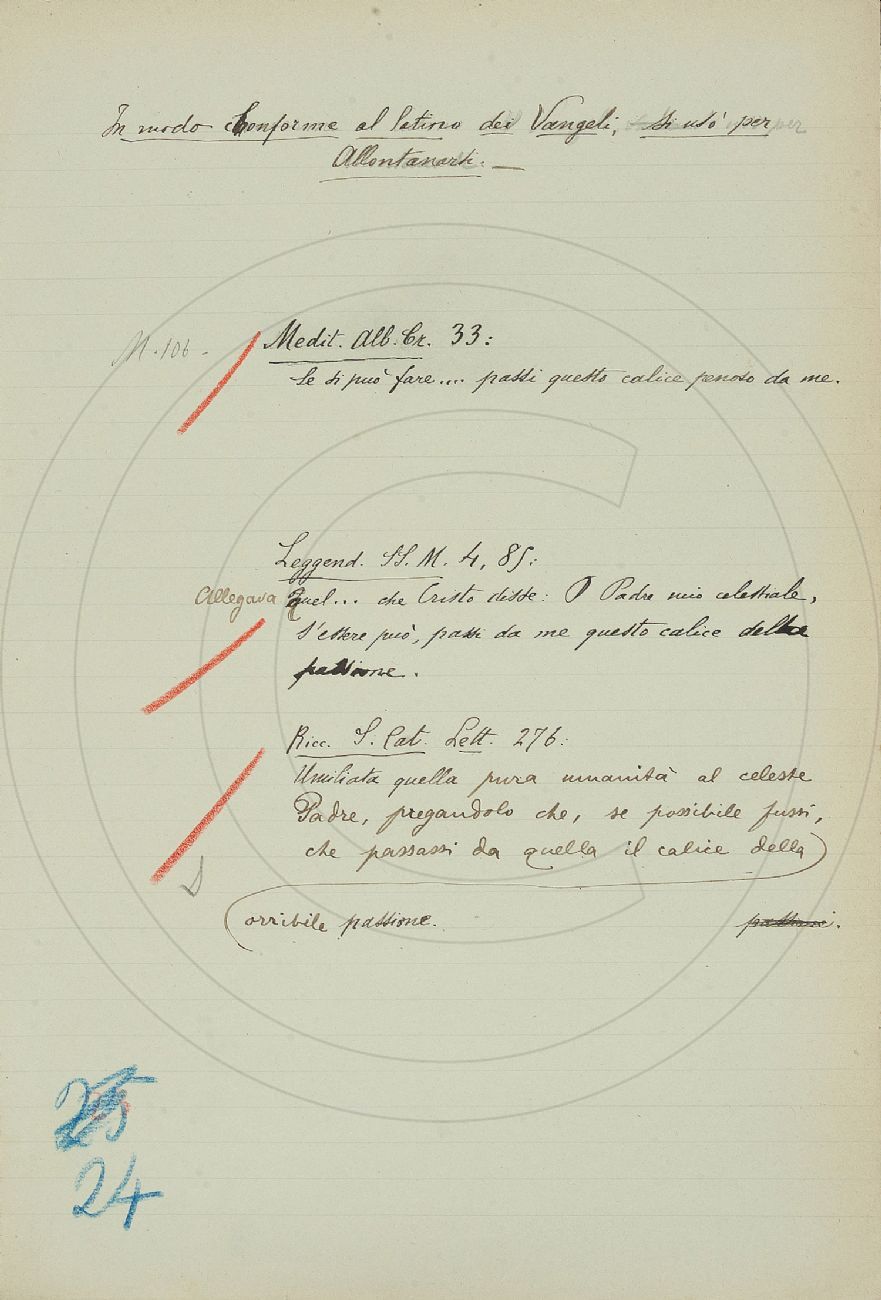 In modo Conforme al latino dei Vangeli, si usò per
Allontanarsi. —
M. 106.
Medit. Alb. Cr. 33:
Se si può fare... passi questo calice penoso da me.
Leggend. SS. M. 4, 85:
Allegava quel... che Cristo disse: O Padre mio celestiale,
s'essere può, passi da me questo calice della
passione.
Ricc. S. Cat. Lett. 276:
Umiliata quella pura umanità al celeste
Padre, pregandolo che, se possibile fussi,
che passassi da quella il calice della
orribile passione.
25
24